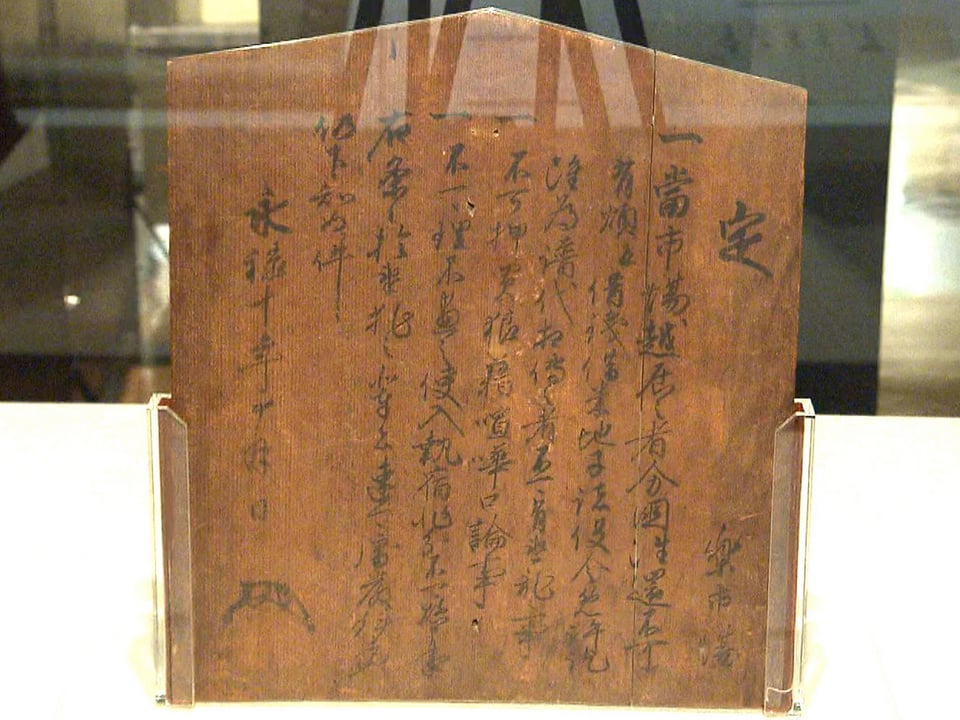 定
樂市場
一當市場越居之者分國往還不可
有煩并借銭借米地子諸役令免許訖
雖為譜代相傳之者不可有違乱事
一不可押買狼藉喧嘩口論事
一不可理不盡之使入執宿非分不可懸申事
右条々於違犯之輩者速可處嚴科者也
仍下知如件
永禄十年十月日